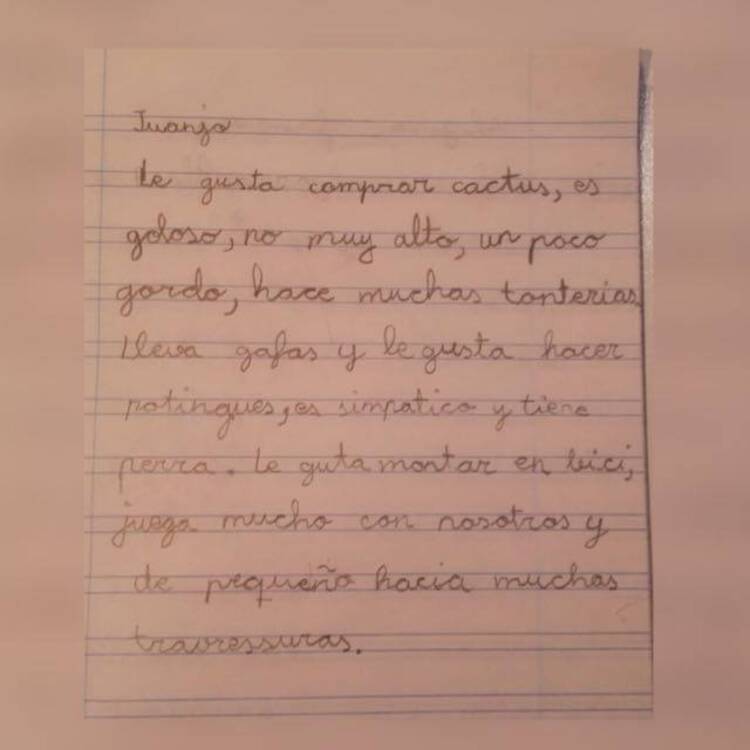 Juanjo
Le gusta comprar cactus, es
goloso, no muy alto, un poco
gordo, hace muchas tonterias.
Lleva gafas y le gusta hacer
potingues, es simpatico y tiene
perra. Le guta montar en bici,
juega mucho con nosotros y
de pequeño hacia muchas
travressuras.